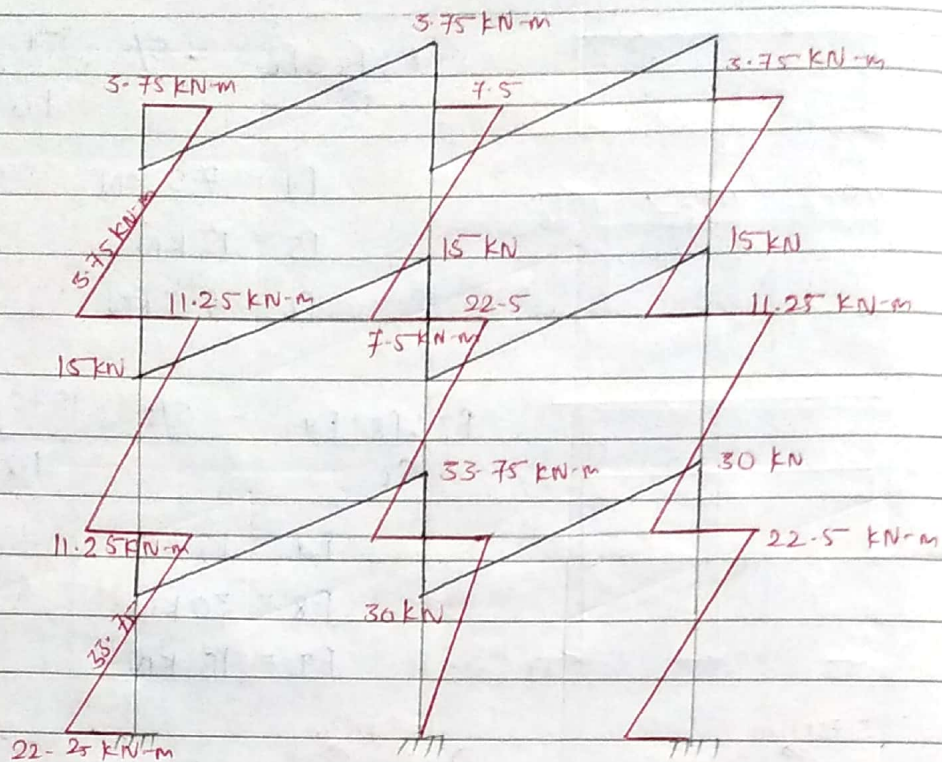 3.75 KN-m
3.75 KN-m
3.75 KN-m
7.5
3.75 KN-m
15 KN
15 KN
11.25 KN-m
22.5
11.25 KN-m
7.5 KN-m
15 KN
33.75 KN-m
30 KN
11.25 KN-m
22.5 KN-m
30 KN
33.75
22-25 KN-m